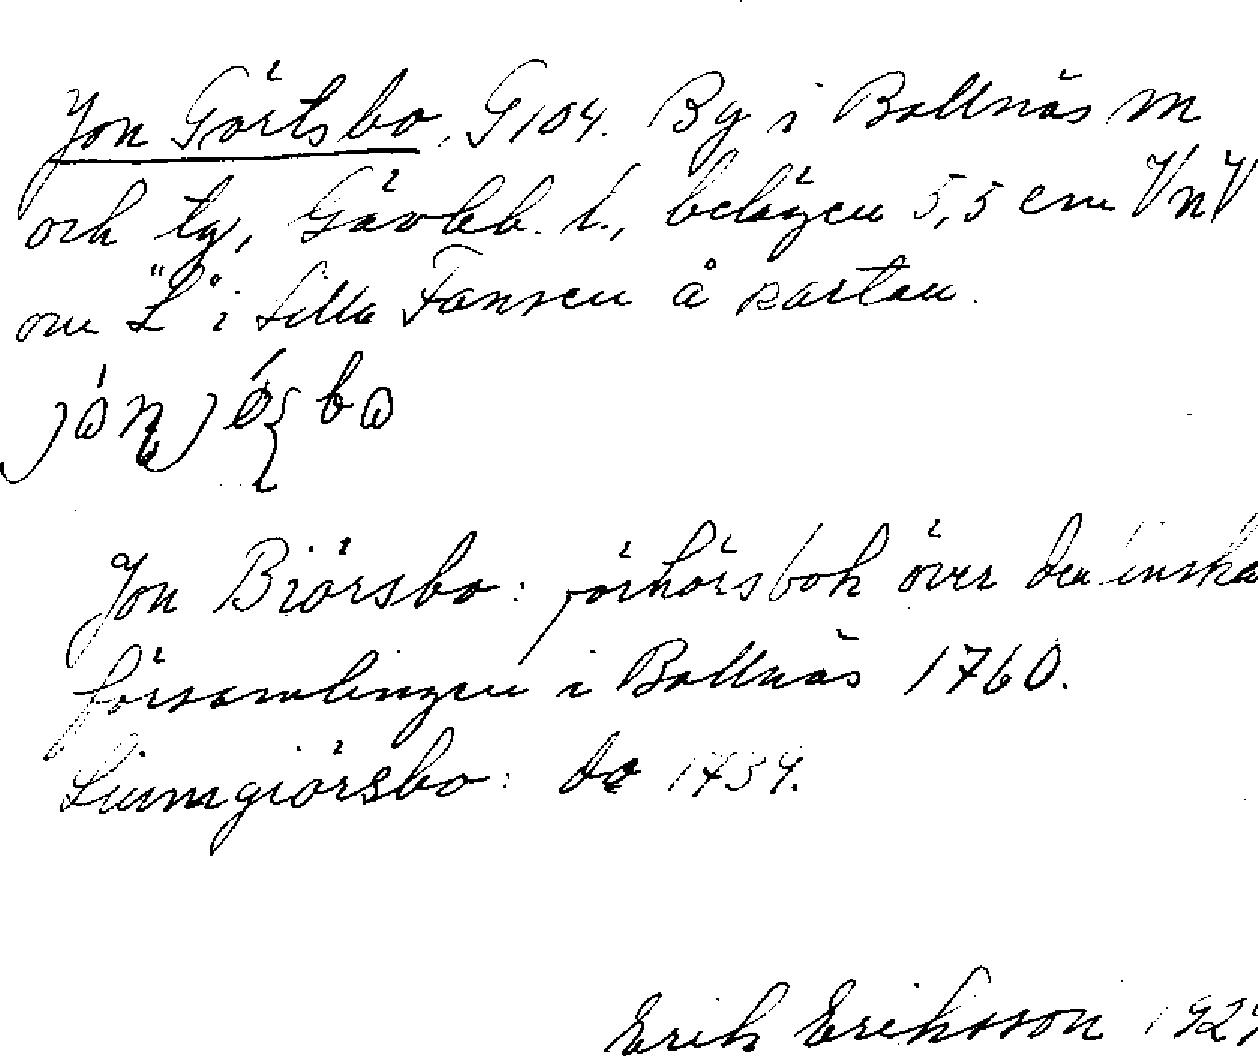 Jon Görtsbo, G104. By i Bollnäs m
och tg, Gävleb. l., belägen 5,5 cm VnV
om "L" i Lilla Fansen å kartan.
Jon Biörsbo: förhörsbok över den
församlingen i Bollnäs 1760.
Liumgiörsbo: do 1734.
Erik Eriksson